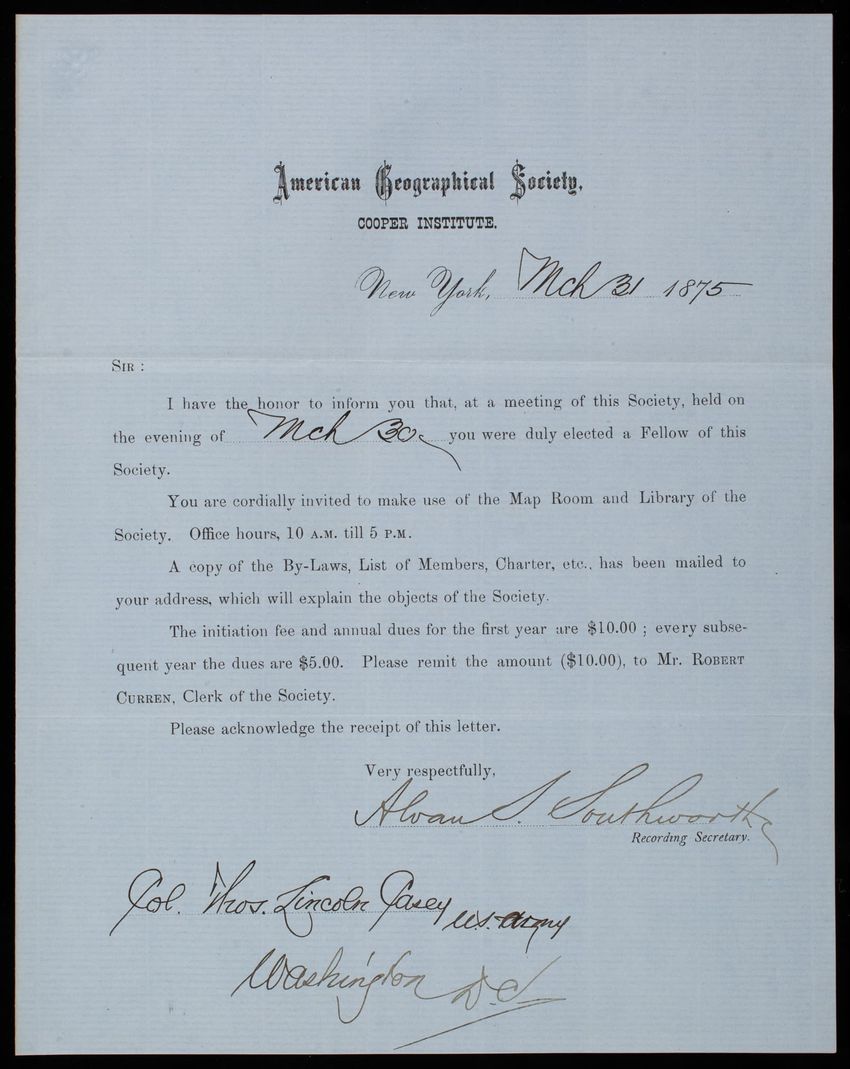 American Geographical Society,
COOPER INSTITUTE.
New York, Mch 31 1875
SIR :
I have the honor to inform you that, at a meeting of this Society, held on
the evening of Mch 30 you were duly elected a Fellow of this
Society.
You are cordially invited to make use of the Map Room and Library of the
Society. Office hours, 10 A.M. till 5 P.M.
A copy of the By-Laws, List of Members, Charter, etc., has been mailed to
your address, which will explain the objects of the Society.
The initiation fee and annual dues for the first year are $10.00 ; every subse-
quent year the dues are $5.00. Please remit the amount ($10.00), to Mr. ROBERT
CURREN, Clerk of the Society.
Please acknowledge the receipt of this letter.
Very respectfully,
Alvan S. Southworth
Recording Secretary.
Col. Thos. Lincoln Casey U.S. Army
Washington D.C.